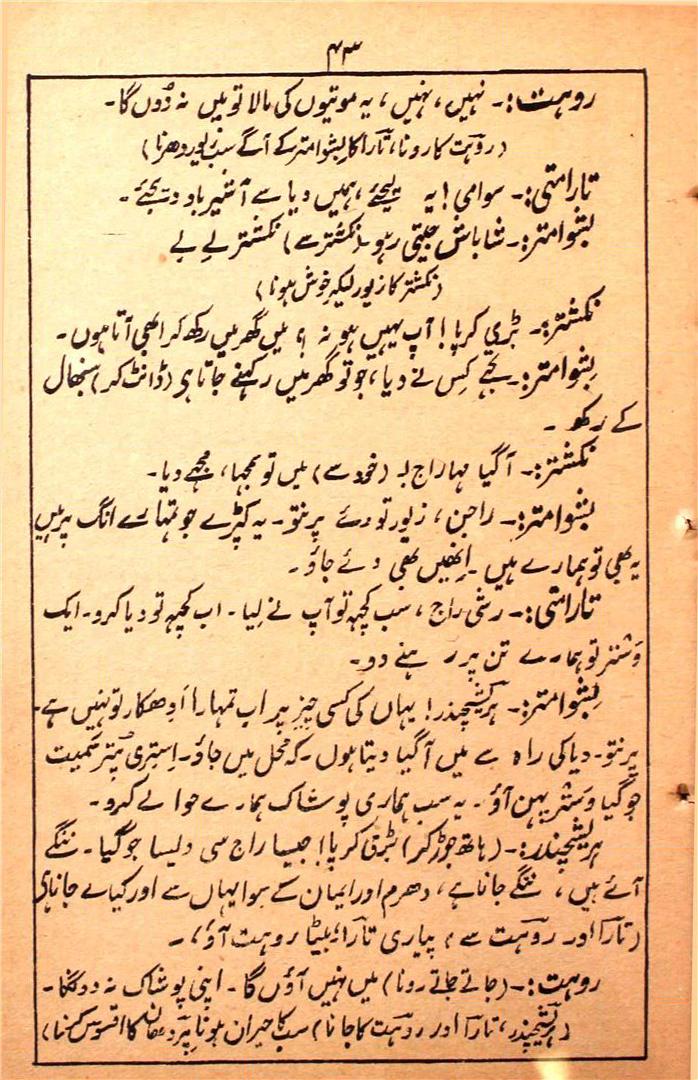 ۴۳
روہت:۔ نہیں، نہیں، یہ موتیوں کی مالا تو میں نہ دُوں گا۔
(روہت کا رونا، تارا کا بشوامتر کے آگے سب زیور دھرنا)
تارامتی:۔ سوامی! یہ لیجئے، ہمیں دیا سے آشیرباد دیجئے۔
بشوامتر:۔ شاباش جیتی رہو۔ (نکشتر سے) نکشتر لے بے
(نکشتر کا زیور لیکر خوش ہونا)
نکشتر:۔ بڑی کرپا! آپ یہیں ہو نہ؟ میں گھر میں رکھ کر ابھی آتا ہوں۔
بشوامتر:۔ تجھے کس نے دیا، جو تو گھر میں رکہنے جاتا ہی (ڈانٹ کر) سنبھال
کے رکھ۔
نکشتر:۔ آگیا مہاراج! (خود سے) میں تو سمجہا، مجھے دیا۔
بشوامتر:۔ راجن، زیور تو دئے پرنتو۔ یہ کپڑے جو تمہارے انگ پر ہیں
یہ بھی تو ہمارے ہیں۔ اِنھیں بھی دئے جاؤ۔
تارامتی:۔ رشی راج، سب کچہہ تو آپ نے لیا۔ اب کچہہ تو دیا کرو۔ ایک
وَشتر تو ہمارے تن پر رہنے دو۔
بشوامتر:۔ ہریشچندر! یہاں کی کسی چیز پر اب تمہارا ادِھکار تو نہیں ہے۔
پرنتو۔ دیا کی راہ سے میں آگیا دیتا ہوں۔ کہ محل میں جاؤ۔ اِستری پُتر سمیت
جوگیا وَستر پہن آؤ۔ یہ سب ہماری پوشاک ہمارے حوالے کرو۔
ہریشچندر:۔ (ہاتھ جوڑ کر) بڑی کرپا! جیسا راج سی ویسا جوگیا۔ ننگے
آئے ہیں، ننگے جانا ہے، دھرم اور ایمان کے سوا یہاں سے اور کیا لے جانا ہی
(تارا اور روہت سے) پیاری تارا، بیٹا روہت آؤ،۔
روہت:۔ (جاتے جاتے رونا) میں نہیں آؤں گا۔ اپنی پوشاک نہ دونگا۔
(ہریشچندر، تارا اور روہت کا جانا) سب کا حیران ہونا پردھان کا افسوس کرنا)